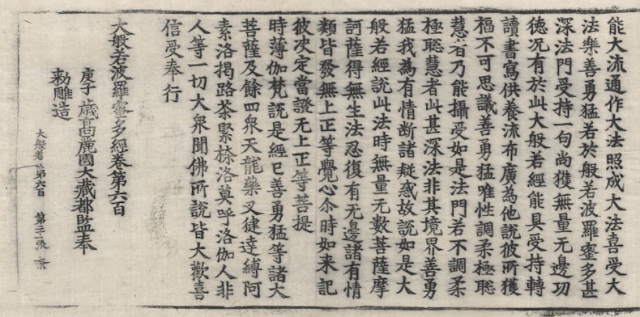 能大流通作大法照成大法喜受大
法樂善勇猛若於般若波羅蜜多甚
深法門受持一句尚獲無量无邊功
德況有於此大般若經能具受持轉
讀書寫供養流布廣為他說彼所獲
福不可思議善勇猛唯性調柔極聡
慧者乃能攝受如是法門若不調柔
極聡慧者此甚深法非其境界善勇
猛我為有情斷諸疑惑故說如是大
般若經說此法時無量无數菩薩摩
訶薩得無生法忍復有无邊諸有情
類皆發無上正等覺心尒時如来記
彼決定當證无上正等菩提
時薄伽梵說是經已善勇猛等諸大
菩薩及餘四衆天龍藥叉健達縛阿
素洛揭路茶緊捺洛莫呼洛伽人非
人等一切大衆聞佛所說皆大歡喜
信受奉行
大般若波羅蜜多經卷第六百
庚子歳高麗國大藏都監奉
勑雕造
大般若 第六百 第 張